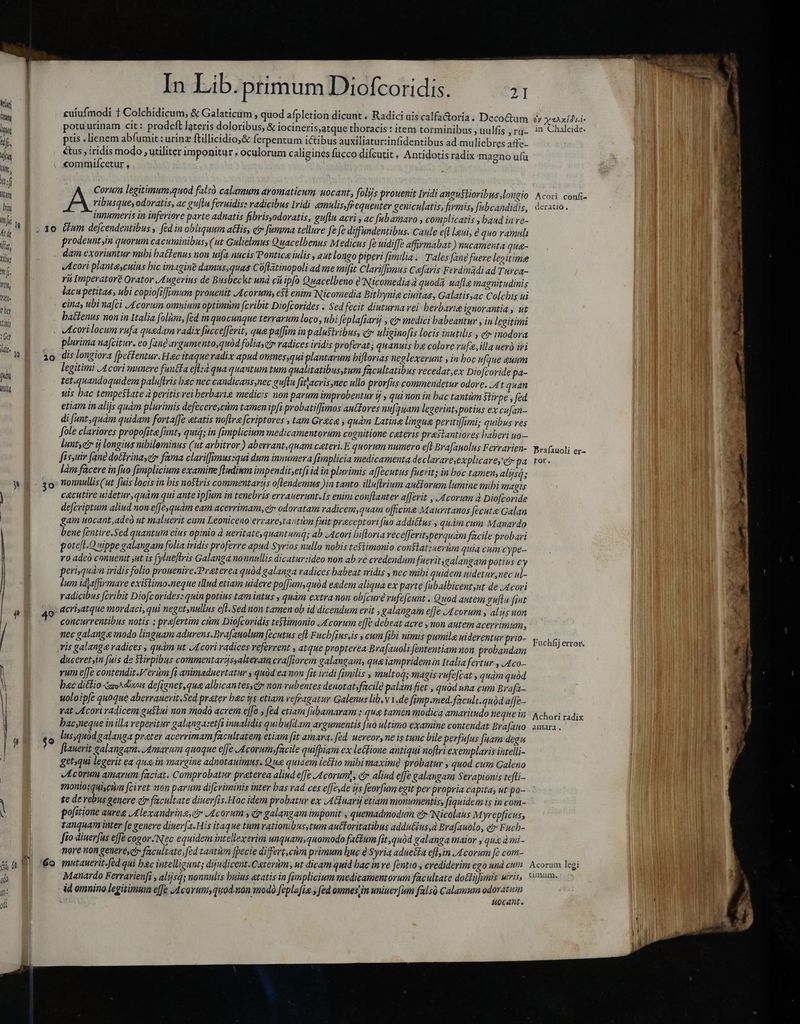 In Lib. primum Dioscoridis. 21
cuiusmodi † Colchidicum, & Galaticum, quod aspletion dicunt. Radici uis calfactoria. Decoctum
potu urinam cit: prodest lateris doloribus, & iocineris, atque thoracis: item torminibus, uulsis, ru-
ptis. lienem absumit: urinæ stillicidio, & serpentum ictibus auxiliatur: insidentibus ad muliebres affe-
ctus, iridis modo, utiliter imponitur. oculorum caligines succo discutit. Antidotis radix magno usu
commiscetur.
in Chalcide.
ACorum legitimum, quod falsò calamum aromaticum uocant, folijs prouenit Iridi angustioribus, longio
ribusque, odoratis, ac gustu feruidis: radicibus Iridi æmulis, frequenter geniculatis, firmis, subcandidis,
innumeris in inferiore parte adnatis fibris, odoratis, gustu acri, ac subamaro, complicatis, haud in re-
10 ctum descendentibus, sed in obliquum actis, & summa tellure se se diffundentibus. Caule est læui, è quo ramuli
prodeunt, in quorum cacuminibus, (ut Gulielmus Quacelbenus Medicus se uidisse affirmabat) nucamenta quæ-
dam exoriuntur mihi hactenus non uisa nucis Ponticæ iulis, aut longo piperi similia. Tales sanè fuere legitimæ
Acori plantæ, cuius hic imaginē damus, quas Cōstātinopoli ad me misit Clarissimus Cæsaris Ferdinādi ad Turca-
rū Imperatorē Orator Augerius de Busbeckt unà cū ipso Quacelbeno è Nicomedia à quodā uastæ magnitudinis
lacu petitas, ubi copiosissimum prouenit Acorum, est enim Nicomedia Bithyniæ ciuitas, Galatis, ac Colchis ui
cina, ubi nasci Acorum omnium optimùm scribit Dioscorides. Sed fecit diuturna rei herbariæ ignorantia, ut
hactenus non in Italia solùm, sed in quocunque terrarum loco, ubi seplasiarij, & medici habeantur, in legitimi
Acori locum rufa quædam radix successerit, quæ passim in palustribus, & uliginosis locis inutilis, & inodora
plurima nascitur. eo sanè argumento, quòd folia, & radices iridis proferat; quanuis hæ colore rufæ, illa uerò iri
20 dis longiora spectentur. Hæc itaque radix apud omnes, qui plantarum historias neglexerunt, in hoc usque æuum
legitimi Acori munere functa est: à qua quantum tum qualitatibus, tum facultatibus recedat, ex Dioscoride pa-
tet. quandoquidem palustris hæc nec candicans, nec gustu sit acris, nec ullo prorsus commendetur odore. At quan
uis hac tempestate à peritis rei herbariæ medicis non parum improbentur ij, qui non in hac tantùm stirpe, sed
etiam in alijs quàm plurimis defecere, cùm tamen ipsi probatissimos auctores nusquam legerint, potius excusan-
di sunt, quàm quidam fortasse ætatis nostræ scriptores, tam Græcæ, quàm Latinæ linguæ peritissimi; quibus res
sole clariores propositæ sunt, quiq; in simplicium medicamentorum cognitione cæteris præstantiores haberi uo-
lunt, & ij longius nihilominus (ut arbitror) aberrant, quàm cæteri. E quorum numero est Brasauolus Ferrarien-
sis, uir sanè doctrina, & fama clarissimus: qui dum innumera simplicia medicamenta declarare, explicare, & pa
làm facere in suo simplicium examine studium impendit, etsi id in plurimis assecutus fuerit; in hoc tamen, alijsq;
30 nonnullis (ut suis locis in his nostris commentarijs ostendemus) in tanto illustrium auctorum lumine mihi magis
cæcutire uidetur, quàm qui ante ipsum in tenebris errauerunt. Is enim constanter asserit, Acorum à Dioscoride
descriptum aliud non esse, quàm eam acerrimam, & odoratam radicem, quam officinæ Mauritanos secutæ Galan
gam uocant, adeò ut maluerit cum Leoniceno errare, tantùm fuit præceptori suo addictus, quàm cum Manardo
bene sentire. Sed quantum eius opinio à ueritate, quantumq; ab Acori historia recesserit, perquàm facile probari
potest. Quippe galangam folia iridis proferre apud Syrios nullo nobis testimonio constat: uerùm quia cum cype-
ro adeò conuenit, ut is syluestris Galanga nonnullis dicatur: ideo non ab re credendum fuerit, galangam potius cy
peri, quàm iridis folio prouenire. Præterea quòd galanga radices habeat iridis, nec mihi quidem uidetur, nec ul-
lum id affirmare existimo. neque illud etiam uidere possum, quòd eædem aliqua ex parte subalbicent, ut de Acori
radicibus scribit Dioscorides: quin potius tam intus, quàm extra non obscurè rufescunt. Quòd autem gustu sint
40 acri, atque mordaci, qui neget, nullus est. Sed non tamen ob id dicendum erit, galangam esse Acorum, alijs non
concurrentibus notis: præsertim cùm Dioscoridis testimonio Acorum esse debeat acre, non autem acerrimum,
nec galangæ modo linguam adurens. Brasauolum secutus est Fuchsius, is, cum sibi nimis pumilæ uiderentur prio-
ris galangæ radices, quàm ut Acori radices referrent, atque propterea Brasauoli sententiam non probandam
duceret, in suis de stirpibus commentarijs, alteram crassiorem galangam, quæ iampridem in Italia fertur, Aco-
rum esse contendit. Verùm si animaduertatur, quòd ea non sit iridi similis, multoq; magis rufescat, quàm quòd
hæc dictio defignet, quæ albicantes, & non rubentes denotat, facilè palàm fiet, quòd unà cum Brasa-
uolo ipse quoque aberrauerit. Sed præter hæc ijs etiam refragatur Galenus lib. VI. de simp. med. facult. quòd asse-
rat Acori radicem gustui non modò acrem esse, sed etiam subamaram: quæ tamen modica amaritudo neque in
hac, neque in illa reperitur galanga: etsi inualidis quibusdam argumentis suo ultimo examine contendat Brasauo
50 lus, quòd galanga præter acerrimam facultatem etiam sit amara. sed uereor, ne is tunc bile perfusus suam degu
stauerit galangam. Amarum quoque esse Acorum, facile quispiam ex lectione antiqui nostri exemplaris intelli-
get, qui legerit ea quæ in margine adnotauimus. Quæ quidem lectio mihi maximè probatur, quòd cum Galeno
Acorum amarum faciat. Comprobatur præterea aliud esse Acorum, & aliud esse galangam Serapionis testi-
monio: qui, cùm sciret non parùm discriminis inter has rad ces esse, de ijs seorsum egit per propria capita, ut po-
te de rebus genere & facultate diuersis. Hoc idem probatur ex Actuarij etiam monumentis, siquidem is in com-
positione aureæ Alexandrinæ, & Acorum, & galangam imponit, quemadmodum & Nicolaus Myrepsicus,
tanquam inter se genere diuersa. His itaque tum rationibus, tum auctoritatibus adductus, à Brasauolo, & Fuch-
sio diuersus esse cogor. Nec equidem intellexerim unquam, quomodo factum sit, quòd galanga maior, quæ à mi-
nore non genere, & facultate, sed tantùm specie differt, cùm primum huc è Syria aduecta est, in Acorum se com-
60 mutauerit. sed qui hæc intelligunt; dijudicent. Cæterùm, ut dicam quid hac in re sentio, crediderim ego unà cum
Manardo Ferrariensi, alijsq; nonnullis huius ætatis in simplicium medicamentorum facultate doctissimis uiris,
id omnino legitimum esse Acorum, quod non modò seplasiæ, sed omnes in uniuersum falsò Calamum odoratum
uocant.
Acori consi-
deratio.
Brasauoli er-
ror.
Fuchsij error.
Achori radix
amara.
Acorum legi
timum.